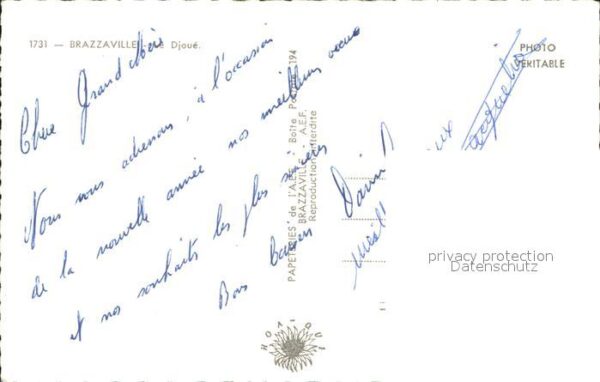 1731 — BRAZZAVILLE Le Djoué.
PHOTO
VERITABLE
Chère Grand Mère
Nous vous adressons, à l'occasion
de la nouvelle année nos meilleurs vœux
et nos souhaits les plus sincères
Bons baisers
Daniel
Jacqueline
PAPETERIES de l'A.E.F. Boîte Postale 194
BRAZZAVILLE - A.E.F.
Reproduction interdite
HOA-QUI
privacy protection
Datenschutz